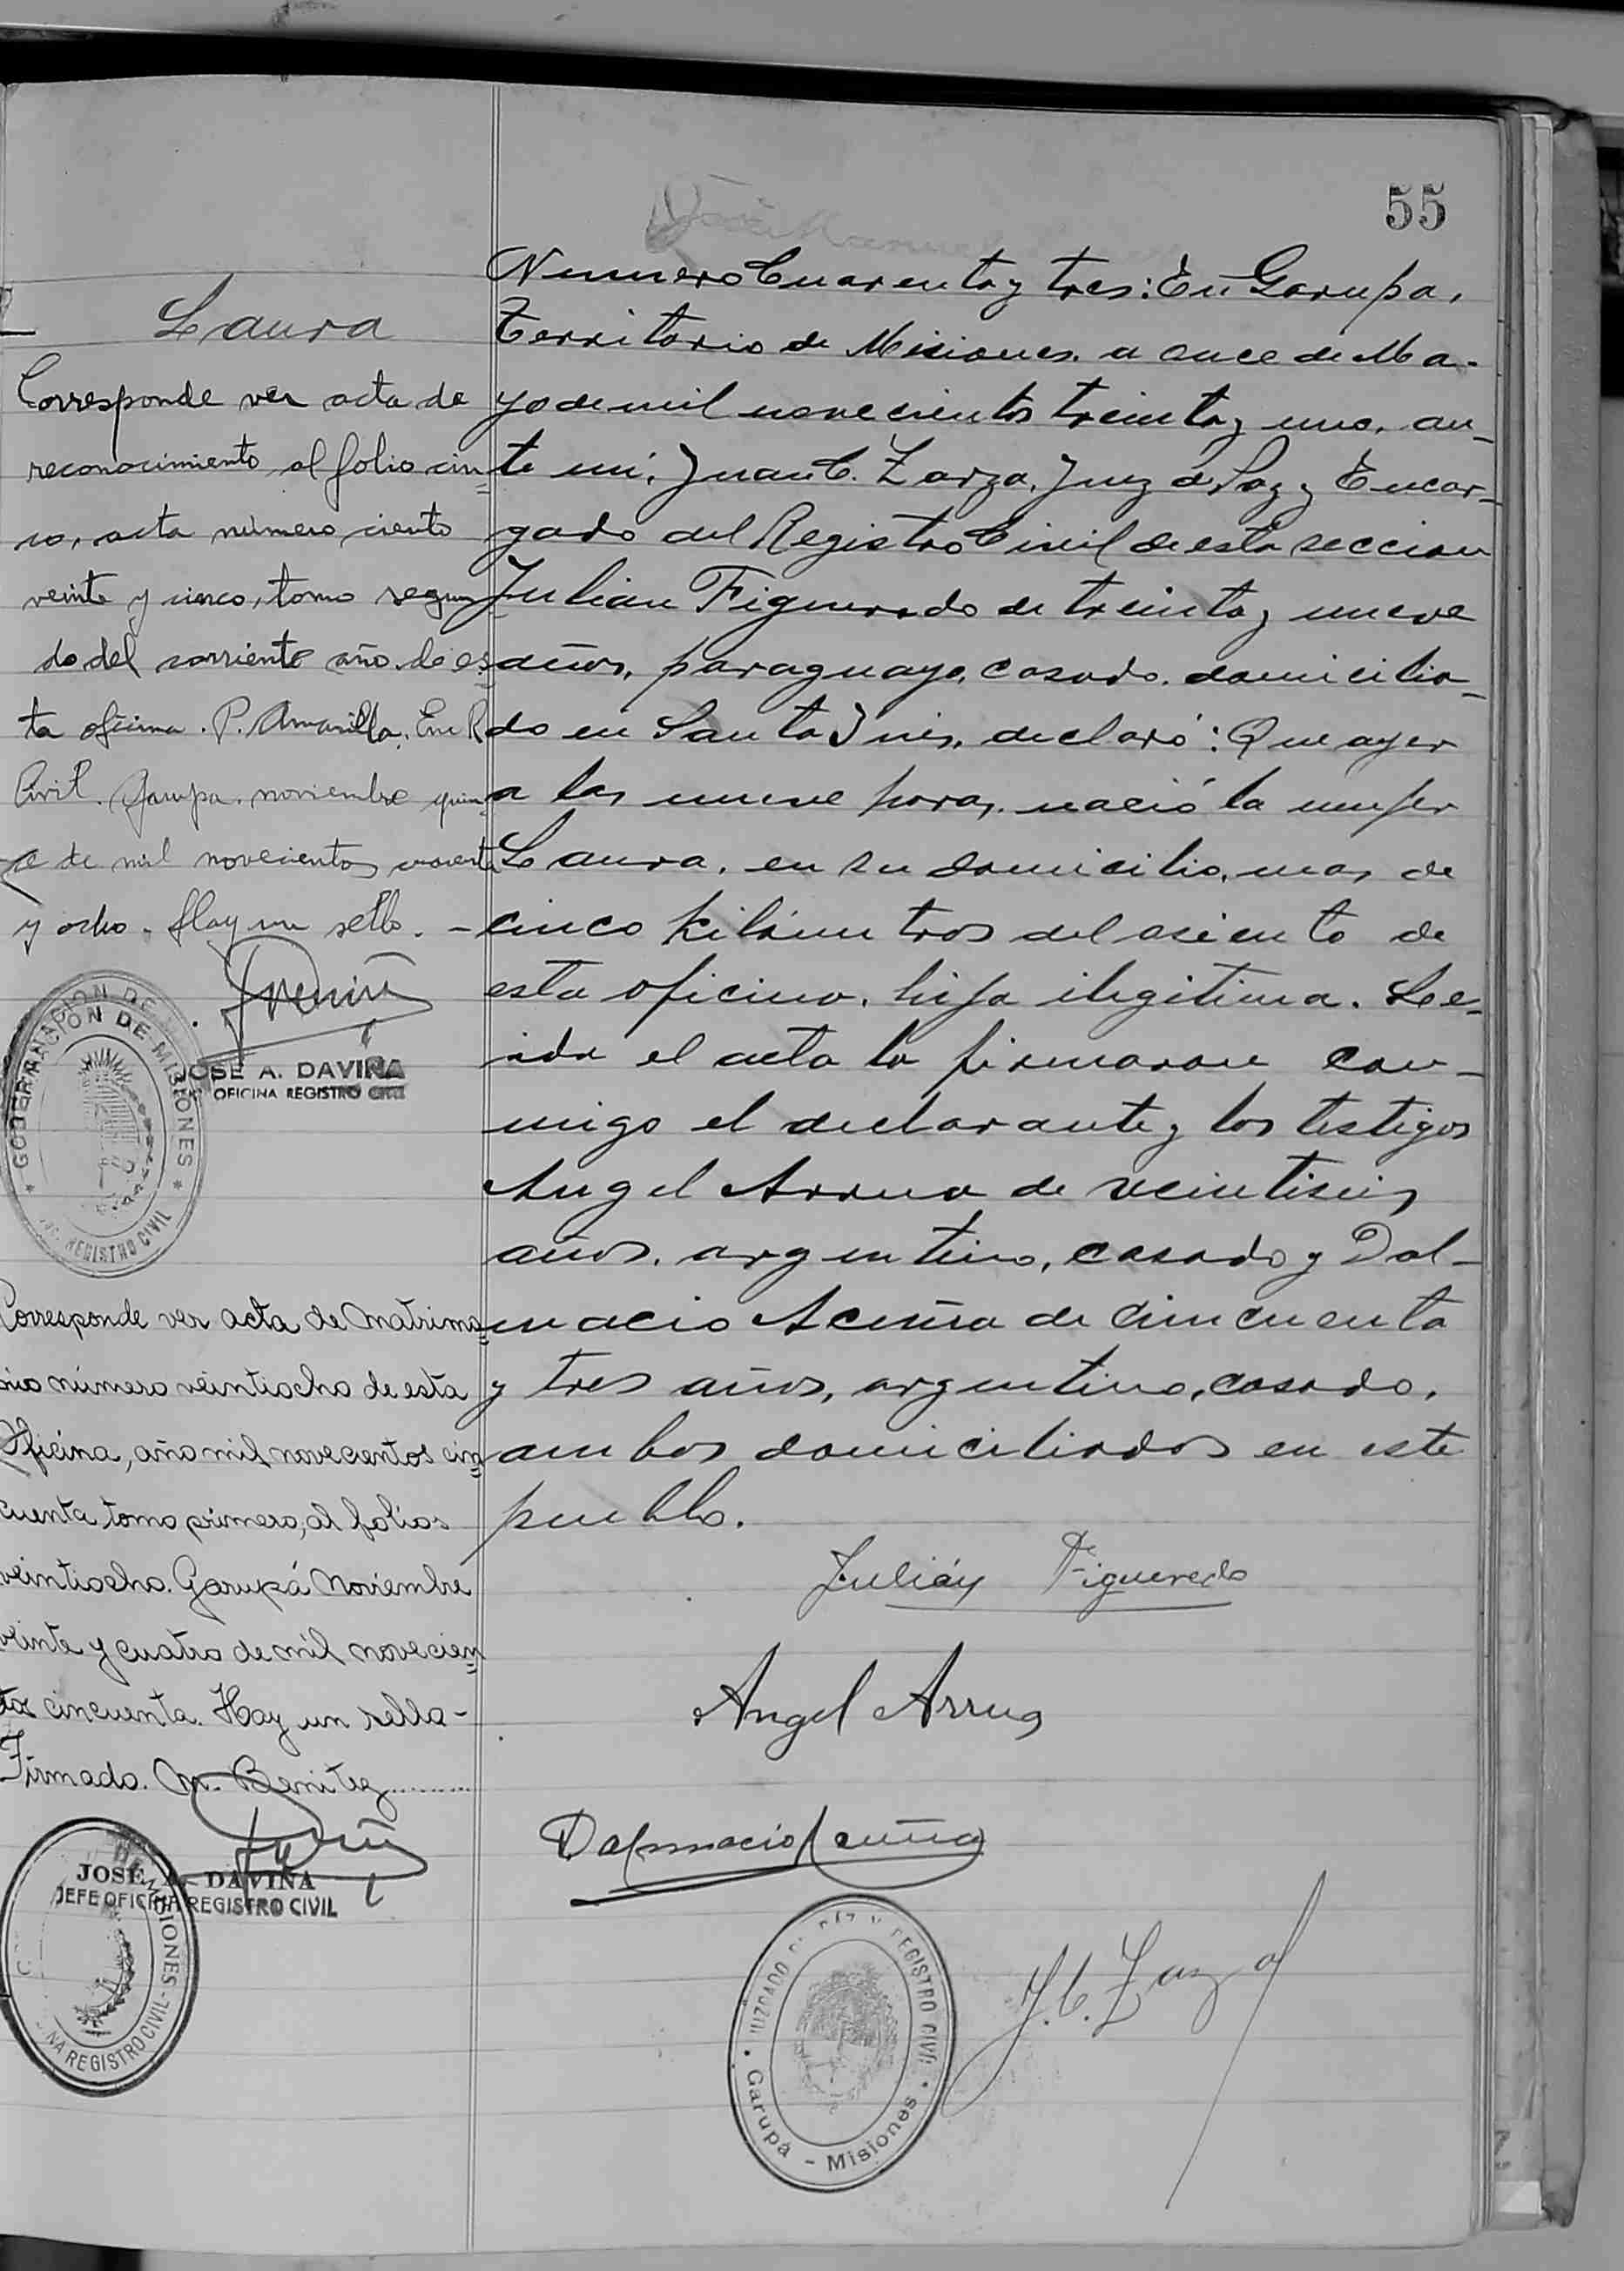 55
Laura
Corresponde ver acta de
reconocimiento al folio cin=
co, acta número ciento
veinte y cinco, tomo segun
do del corriente año de es=
ta oficina. P. Amarilla. Enc. R.
Civil. Garupa. noviembre quin=
ce de mil novecientos cuarenta
y ocho. Hay un sello. -
JOSE A. DAVIÑA
OFICINA REGISTRO CIVIL
GOBERNACION DE MISIONES
REGISTRO CIVIL
Corresponde ver acta de Matrimo=
nio número veintiocho de esta
Oficina, año mil novecientos cin=
cuenta tomo primero, al folios
veintiocho. Garupá Noviembre
veinte y cuatro de mil novecien=
tos cincuenta. Hay un sello -
Firmado. M. Benitez
JOSE A. DAVIÑA
JEFE OFICINA REGISTRO CIVIL
MISIONES - REGISTRO CIVIL -
Numero Cuarenta y tres: En Garupa,
Territorio de Misiones. a once de Ma-
yo de mil novecientos treinta y uno, an-
te mi, Juan C. Zarza, Juez de Paz y Encar-
gado del Registro Civil de esta seccion
Julian Figueredo de treinta y nueve
años, paraguayo, casado, domicilia-
do en Santa Ines, declaró: Que ayer
a las nueve horas, nació la mujer
Laura, en su domicilio, mas de
cinco kilómetros del asiento de
esta oficina, hija ilegitima. Le-
ida el acta la firmaron con-
migo el declarante y los testigos
Angel Arrua de veintiseis
años, argentino, casado y Dal-
macio Acuña de cincuenta
y tres años, argentino, casado,
ambos domiciliados en este
pueblo.
Julián Figueredo
Angel Arrua
Dalmacio Acuña
JUZGADO DE PAZ Y REGISTRO CIVIL
Garupá - Misiones
J. C. Zarza